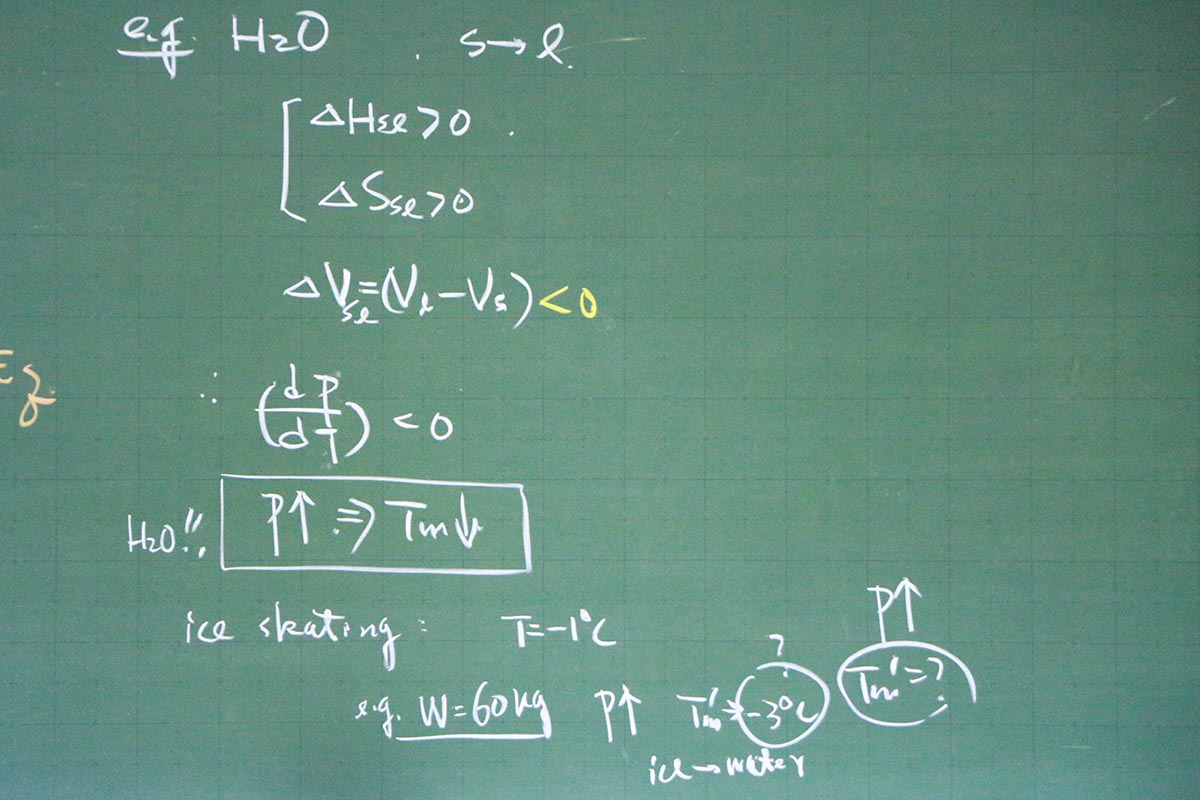 e.g. H2O . s→l.
ΔHsl>0 .
ΔSsl>0
ΔVsl=(Vl−Vs)<0
Eg
∴ (dP/dT) < 0
H2O!! P↑ ⇒ Tm↓
ice skating : T=-1°C P↑
e.g. W=60kg P↑ Tm'→-3°C ? Tm'=?
ice→water